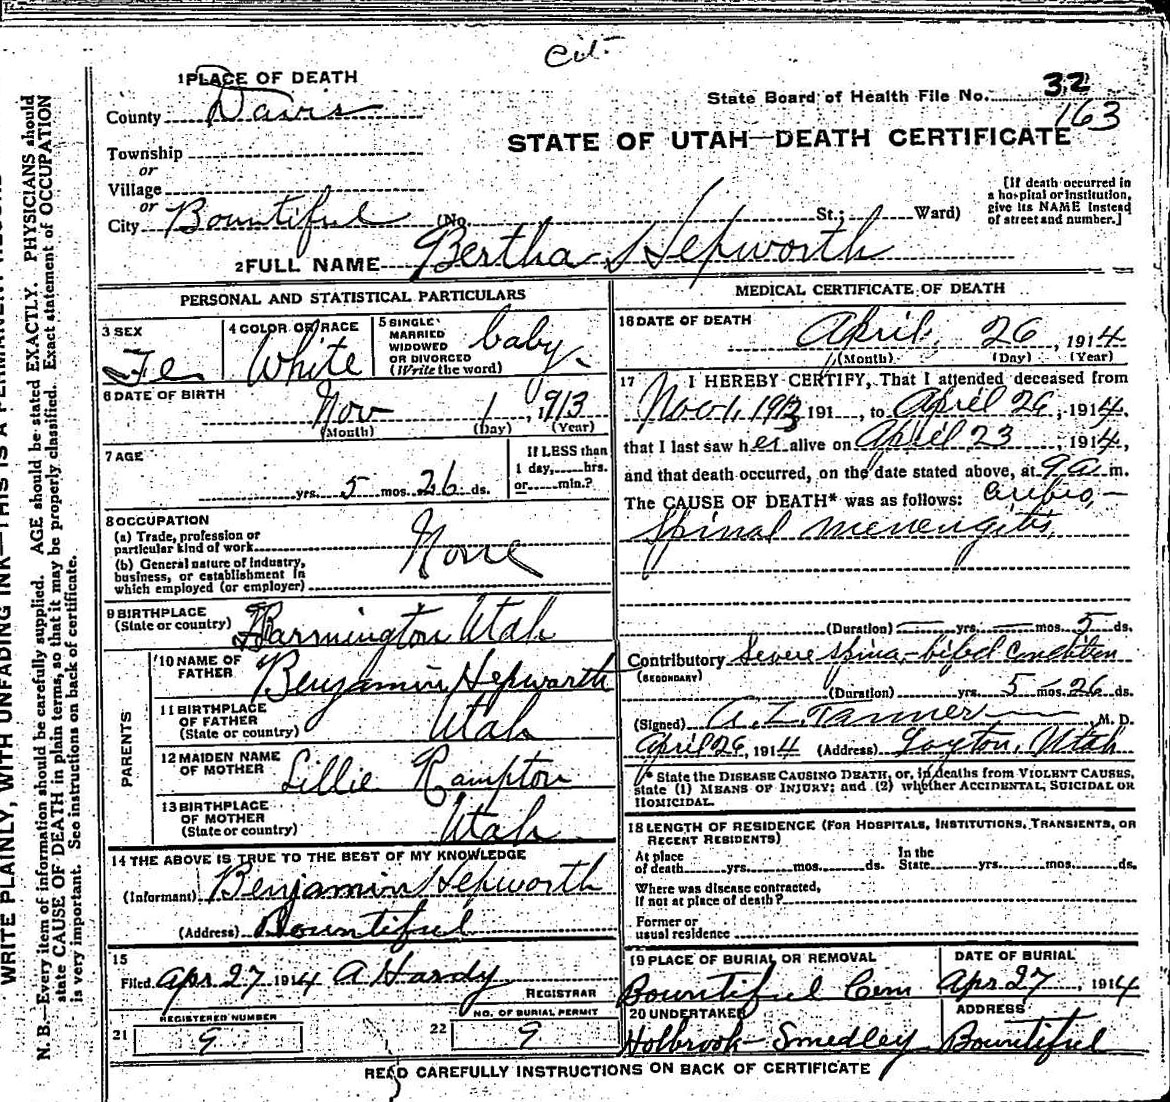 Cert
1 PLACE OF DEATH
County Davis
State Board of Health File No. 32
163
STATE OF UTAH—DEATH CERTIFICATE
Township
or
Village
or
City Bountiful (No. St.; Ward)
[If death occurred in
a hospital or institution,
give its NAME instead
of street and number.]
2 FULL NAME Bertha Hepworth
PERSONAL AND STATISTICAL PARTICULARS
3 SEX Fe
4 COLOR OR RACE White
5 SINGLE
MARRIED
WIDOWED
OR DIVORCED
(Write the word) baby
6 DATE OF BIRTH Nov 1, 1913
(Month) (Day) (Year)
7 AGE
yrs. 5 mos. 26 ds.
If LESS than
1 day, hrs.
or min.?
8 OCCUPATION
(a) Trade, profession or
particular kind of work
None
(b) General nature of industry,
business, or establishment in
which employed (or employer)
9 BIRTHPLACE
(State or country) Farmington Utah
PARENTS
10 NAME OF
FATHER Benjamin Hepworth
11 BIRTHPLACE
OF FATHER
(State or country) Utah
12 MAIDEN NAME
OF MOTHER Lillie Rampton
13 BIRTHPLACE
OF MOTHER
(State or country) Utah
14 THE ABOVE IS TRUE TO THE BEST OF MY KNOWLEDGE
(Informant) Benjamin Hepworth
(Address) Bountiful
15
Filed Apr 27 1914 A Hardy
REGISTRAR
REGISTERED NUMBER
21 9
NO. OF BURIAL PERMIT
22 9
MEDICAL CERTIFICATE OF DEATH
16 DATE OF DEATH
April 26, 1914
(Month) (Day) (Year)
17 I HEREBY CERTIFY, That I attended deceased from
Nov 1, 1913 191 , to April 26, 1914,
that I last saw her alive on April 23, 1914,
and that death occurred, on the date stated above, at 9 a. m.
The CAUSE OF DEATH* was as follows: cerebro-
spinal menengitis,
(Duration) — yrs. — mos. 5 ds.
Contributory Severe spina-bifed condition
(SECONDARY)
(Duration) yrs. 5 mos. 26 ds.
(Signed) A. Z. Tanner, M. D.
April 26, 1914 (Address) Layton, Utah
* State the DISEASE CAUSING DEATH, or, in deaths from VIOLENT CAUSES,
state (1) MEANS OF INJURY; and (2) whether ACCIDENTAL, SUICIDAL OR
HOMICIDAL.
18 LENGTH OF RESIDENCE (FOR HOSPITALS, INSTITUTIONS, TRANSIENTS, OR
RECENT RESIDENTS)
At place
of death yrs. mos. ds.
In the
State yrs. mos. ds.
Where was disease contracted,
if not at place of death?
Former or
usual residence
19 PLACE OF BURIAL OR REMOVAL
Bountiful Cem
DATE OF BURIAL
Apr 27, 1914
20 UNDERTAKER
Holbrook-Smedley
ADDRESS
Bountiful
READ CAREFULLY INSTRUCTIONS ON BACK OF CERTIFICATE
WRITE PLAINLY, WITH UNFADING INK—THIS IS A PERMANENT RECORD
N. B.—Every item of information should be carefully supplied. AGE should be stated EXACTLY. PHYSICIANS should
state CAUSE OF DEATH in plain terms, so that it may be properly classified. Exact statement of OCCUPATION
is very important. See instructions on back of certificate.